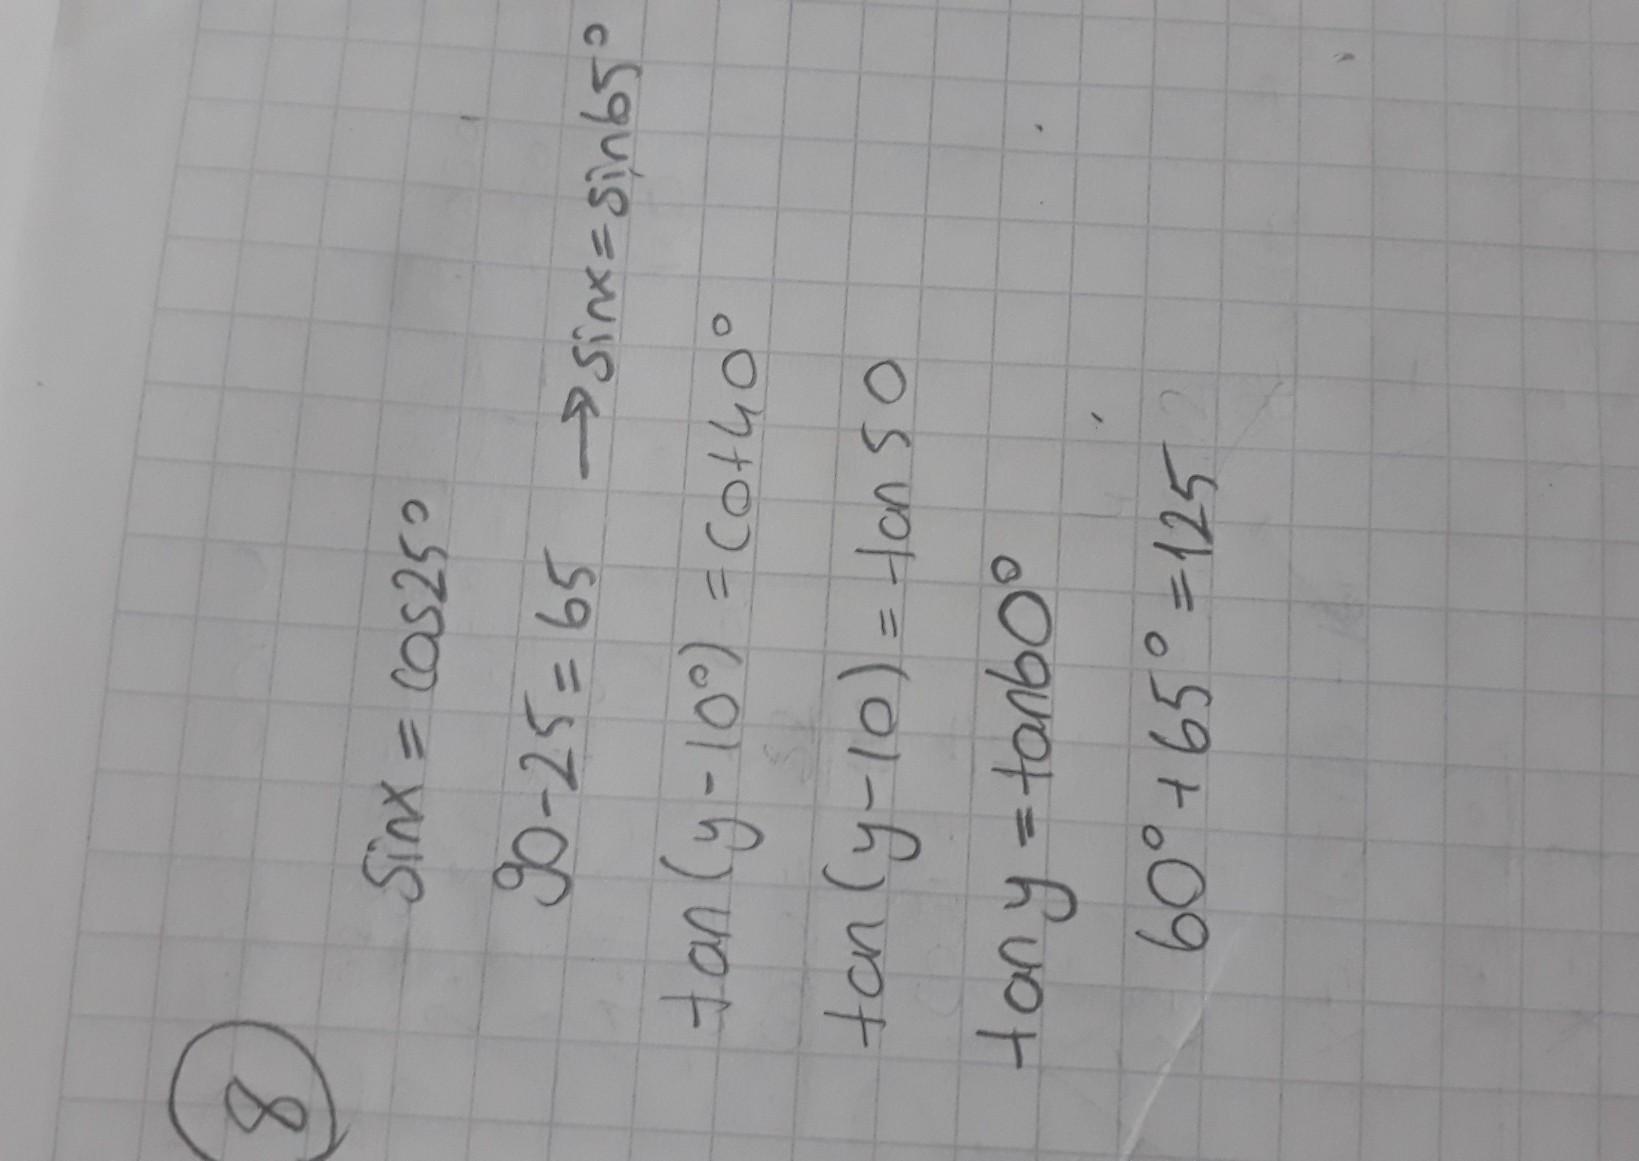 8
Sinx = cos25°
90-25=65 → sinx=sin65°
tan(y-10°) = cot40°
tan(y-10)=tan50
tany=tan60°
60°+65°=125